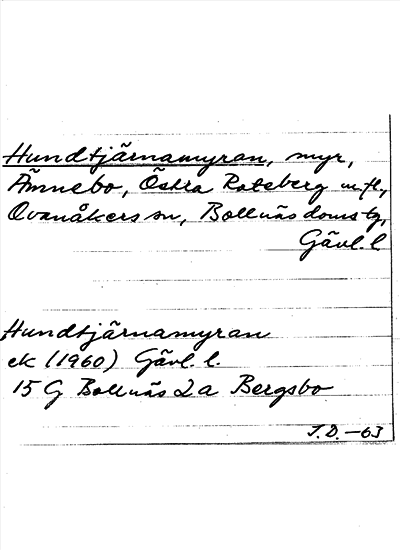 Hundtjärnamyran, myr,
Ämnebo, Östra Roteberg m.fl.,
Ovanåkers sn, Bollnäs doms tg,
Gävl. l
Hundtjärnamyran
ek (1960) Gävl. l.
15 G Bollnäs 2a Bergsbo
J.D. -63